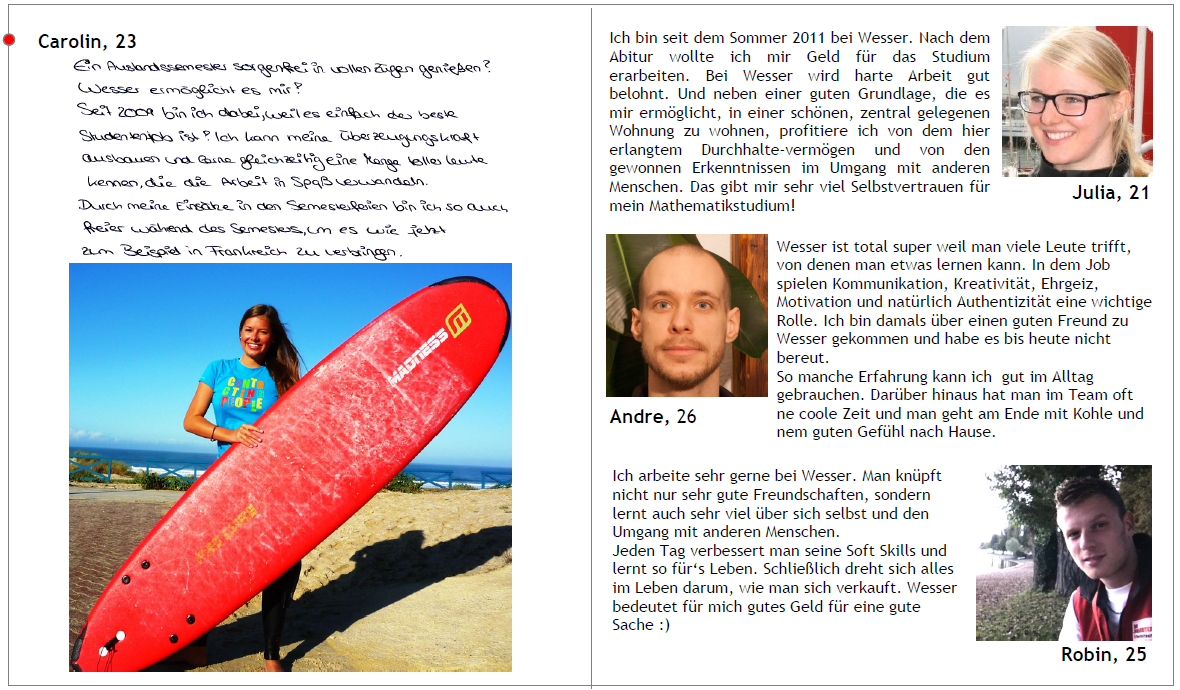 Carolin, 23
Ein Auslandssemester sorgenfrei in vollen Zügen genießen?
Wesser ermöglicht es mir!
Seit 2009 bin ich dabei, weil es einfach der beste
Studentenjob ist! Ich kann meine Überzeugungskraft
ausbauen und lerne gleichzeitig eine Menge toller Leute
kennen, die die Arbeit in Spaß verwandeln.
Durch meine Einsätze in den Semesterferien bin ich so auch
freier während des Semesters, um es wie jetzt
zum Beispiel in Frankreich zu verbringen.
MADNESS
Ich bin seit dem Sommer 2011 bei Wesser. Nach dem
Abitur wollte ich mir Geld für das Studium
erarbeiten. Bei Wesser wird harte Arbeit gut
belohnt. Und neben einer guten Grundlage, die es
mir ermöglicht, in einer schönen, zentral gelegenen
Wohnung zu wohnen, profitiere ich von dem hier
erlangtem Durchhalte-vermögen und von den
gewonnen Erkenntnissen im Umgang mit anderen
Menschen. Das gibt mir sehr viel Selbstvertrauen für
mein Mathematikstudium!
Julia, 21
Wesser ist total super weil man viele Leute trifft,
von denen man etwas lernen kann. In dem Job
spielen Kommunikation, Kreativität, Ehrgeiz,
Motivation und natürlich Authentizität eine wichtige
Rolle. Ich bin damals über einen guten Freund zu
Wesser gekommen und habe es bis heute nicht
bereut.
So manche Erfahrung kann ich gut im Alltag
gebrauchen. Darüber hinaus hat man im Team oft
ne coole Zeit und man geht am Ende mit Kohle und
nem guten Gefühl nach Hause.
Andre, 26
Ich arbeite sehr gerne bei Wesser. Man knüpft
nicht nur sehr gute Freundschaften, sondern
lernt auch sehr viel über sich selbst und den
Umgang mit anderen Menschen.
Jeden Tag verbessert man seine Soft Skills und
lernt so für‘s Leben. Schließlich dreht sich alles
im Leben darum, wie man sich verkauft. Wesser
bedeutet für mich gutes Geld für eine gute
Sache :)
Robin, 25